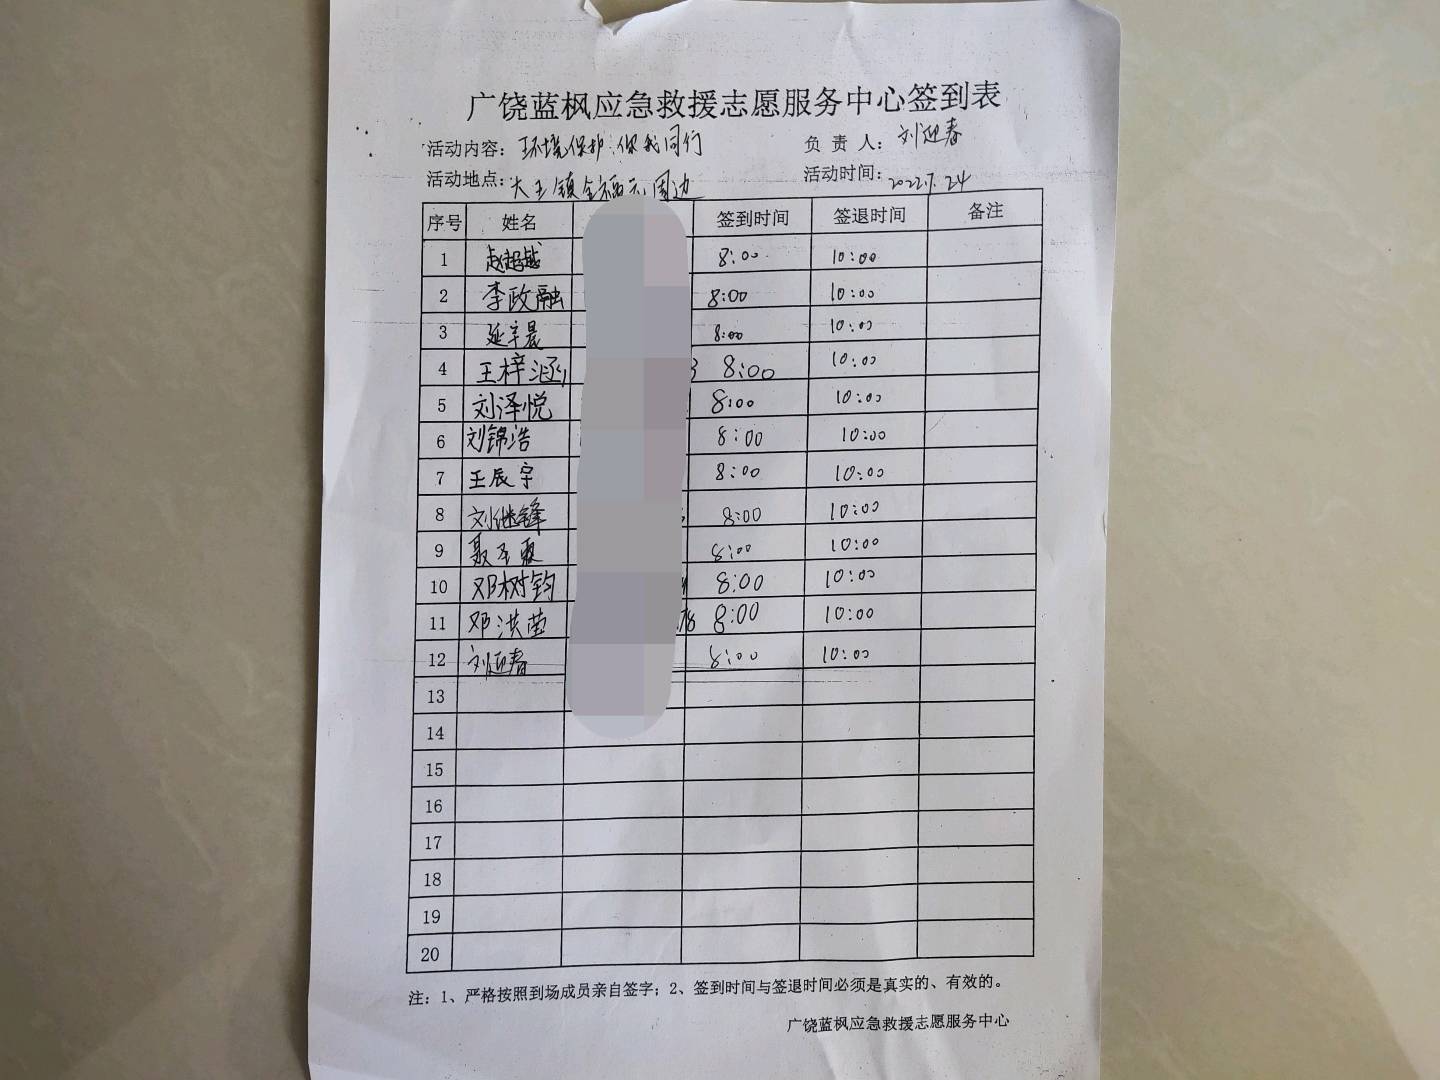 广饶蓝枫应急救援志愿服务中心签到表
活动内容：环境保护，你我同行 负责人：刘迎春
活动地点：大王镇全福元周边 活动时间：2022.7.24
序号 姓名 签到时间 签退时间 备注
1 赵超越 8:00 10:00
2 李政融 8:00 10:00
3 延辛晨 8:00 10:00
4 王梓涵 8:00 10:00
5 刘泽悦 8:00 10:00
6 刘锦浩 8:00 10:00
7 王辰宇 8:00 10:00
8 刘继锋 8:00 10:00
9 聂圣 8:00 10:00
10 邓树钧 8:00 10:00
11 邓洪莹 8:00 10:00
12 刘迎春 8:00 10:00
13
14
15
16
17
18
19
20
注：1、严格按照到场成员亲自签字；2、签到时间与签退时间必须是真实的、有效的。
广饶蓝枫应急救援志愿服务中心